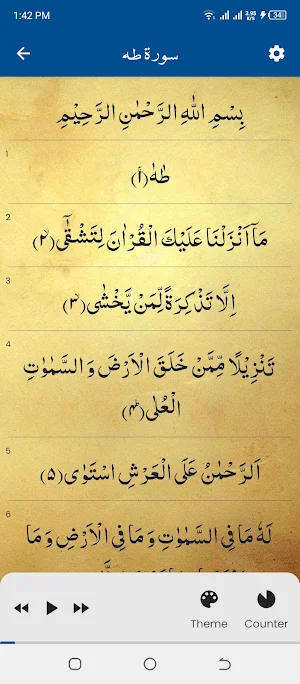 1:42 PM 3.95 K/s 34
سورة طه
بِسْمِ اللهِ الرَّحْمٰنِ الرَّحِيْمِ
1
طٰهٰ (۱)
2
مَاۤ اَنْزَلْنَا عَلَيْكَ الْقُرْاٰنَ لِتَشْقٰۤى (۲)
3
اِلَّا تَذْكِرَةً لِّمَنْ يَّخْشٰى (۳)
4
تَنْزِيْلًا مِّمَّنْ خَلَقَ الْاَرْضَ وَ السَّمٰوٰتِ
الْعُلٰى (۴)
5
اَلرَّحْمٰنُ عَلَى الْعَرْشِ اسْتَوٰى (۵)
6
لَهٗ مَا فِى السَّمٰوٰتِ وَ مَا فِى الْاَرْضِ وَ مَا
Theme Counter